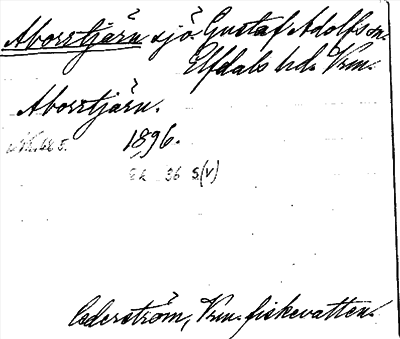 Aborrtjärn sjö Gustaf Adolfs sn.
Elfdals hd. Vrm.
Aborrtjärn.
1896.
Ek 36 S(v)
Cederström, Vrm. fiskevatten.